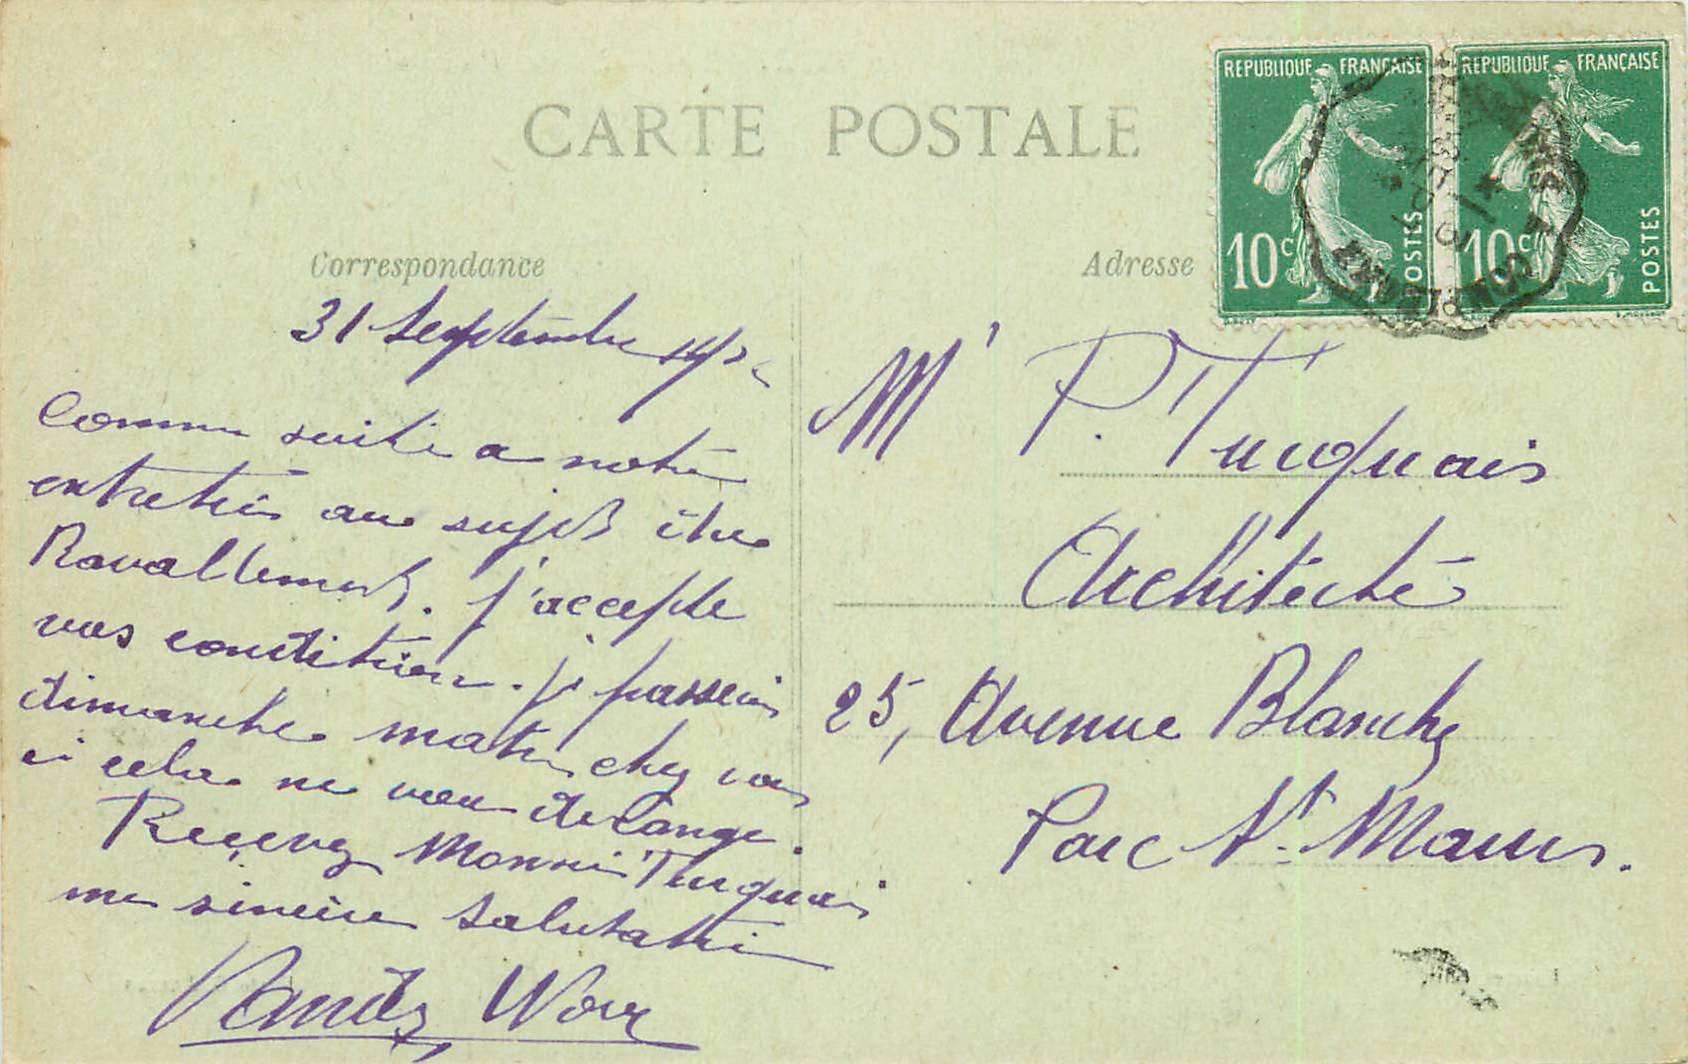 CARTE POSTALE
REPUBLIQUE FRANÇAISE
10c POSTES
REPUBLIQUE FRANÇAISE
10c POSTES
Correspondance
31 Septembre
Comme suite a notre
entretien au sujet du
Ravallement. j'accepte
vos conditions. je passerai
dimanche matin chez vous
si cela ne vous derange.
Recevez Monsieur Tucquais
me sincère salutation
Adresse
Mr P. Tucquais
Architecte
25, Avenue Blanche
Parc St. Maur.